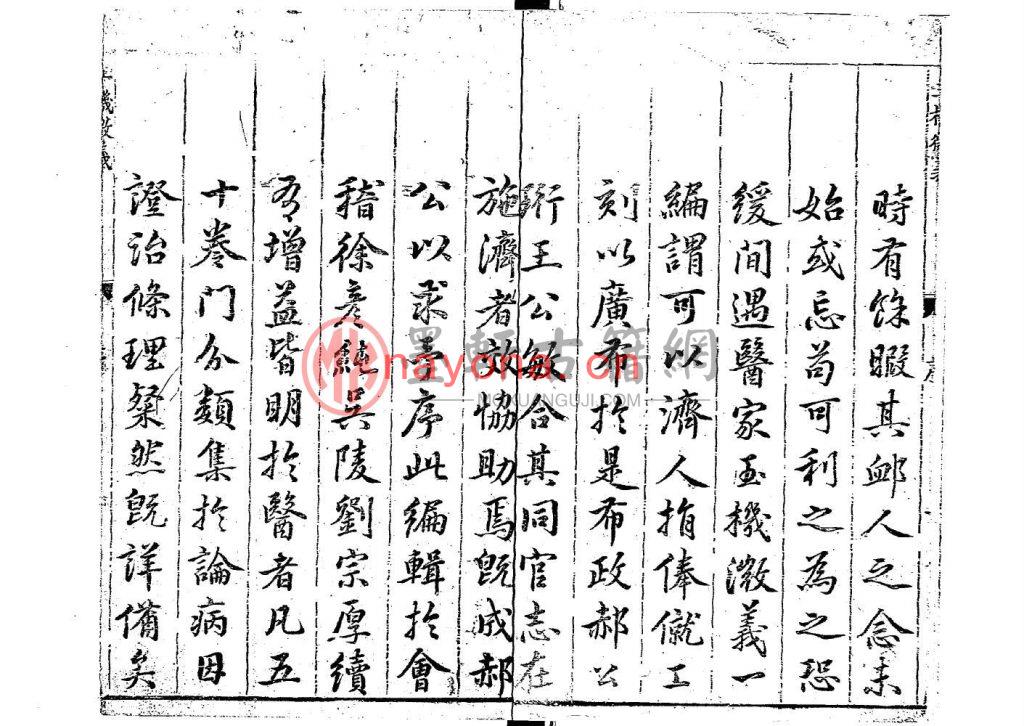 時有餘暇其䘏人之念未
始或忘苟可利之為之恐
緩間遇醫家玉機微義一
編謂可以濟人捐俸僦工
刻以廣布於是布政郝公
珩王公敏合其同官志在
施濟者效協助焉既成郝
公以求予序此編輯於會
稽徐彥純吳陵劉宗厚續
有增益皆明於醫者凡五
十卷門分類集於論病因
證治條理粲然既詳備矣
玉機微義
墨軒古籍網
nayona.cn
MOXUANGUJI.COM